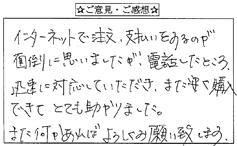 ☆ご意見・ご感想☆
インターネットで注文、支払いをするのが
面倒に思いましたが、電話したところ、
迅速に対応していただき、また安く購入
できて とても助かりました。
また何かあればよろしくお願い致します。